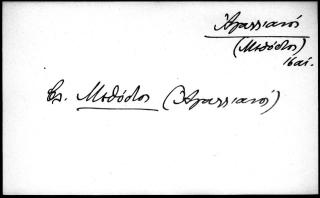 Ἀγασσιανός
(Μεθόδιος)
16 αἰ.
βλ. Μεθόδιος (Ἀγασσιανός)